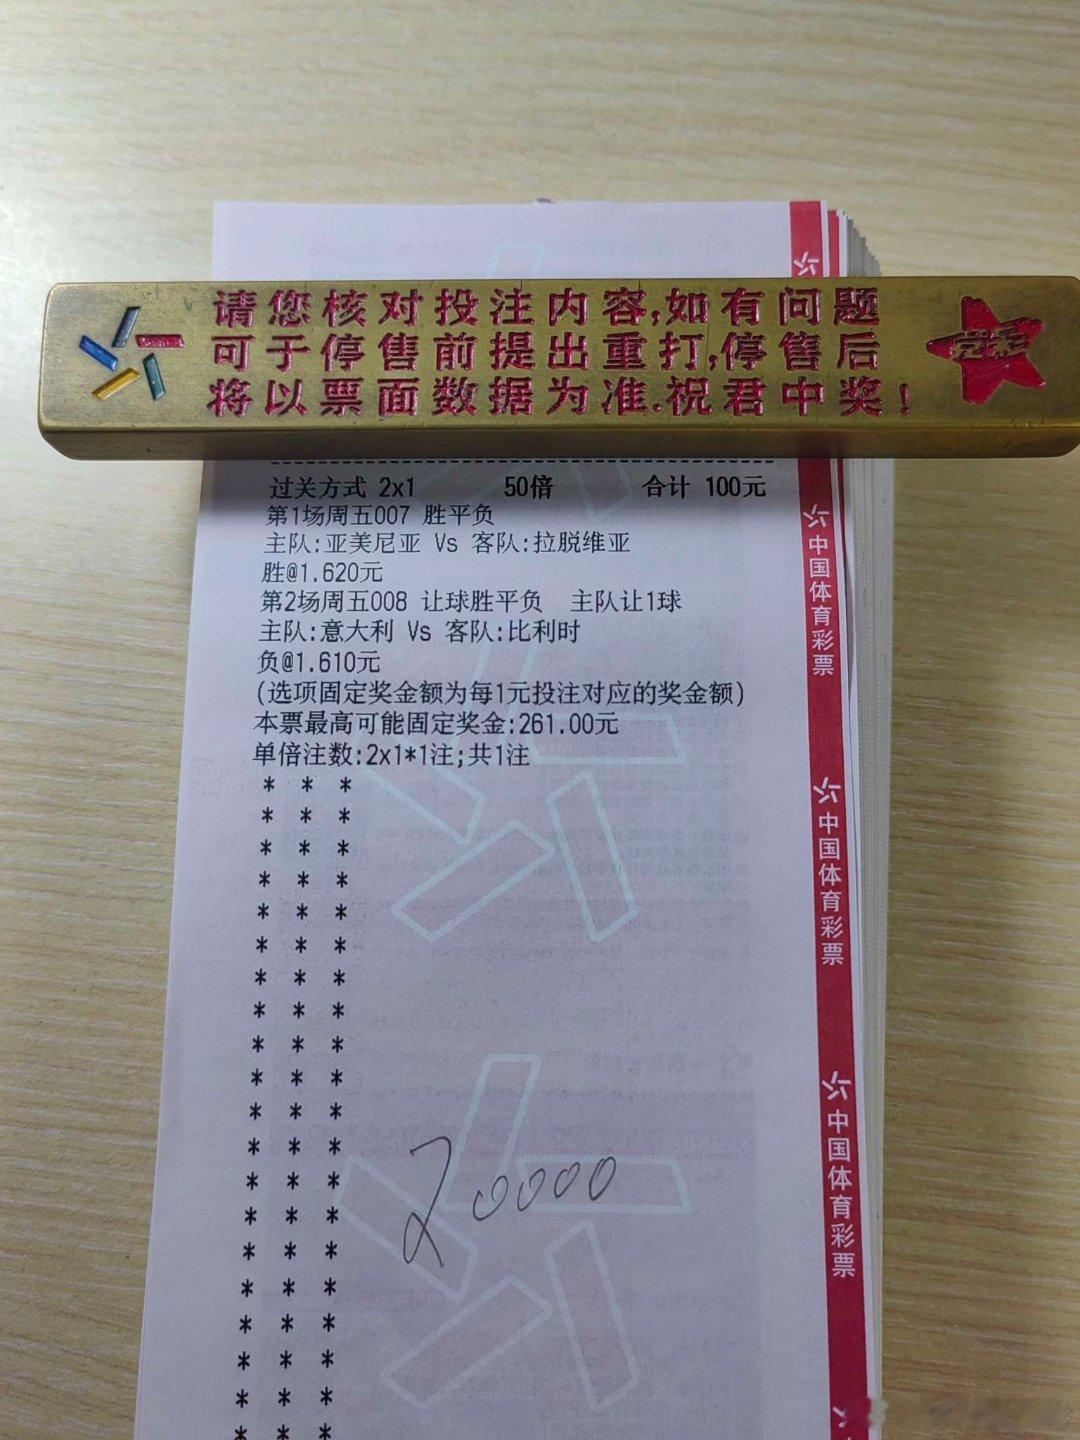 请您核对投注内容,如有问题
可于停售前提出重打,停售后
将以票面数据为准.祝君中奖!
竞彩
过关方式 2x1 50倍 合计 100元
第1场周五007 胜平负
主队:亚美尼亚 Vs 客队:拉脱维亚
胜@1.620元
第2场周五008 让球胜平负 主队让1球
主队:意大利 Vs 客队:比利时
负@1.610元
(选项固定奖金额为每1元投注对应的奖金额)
本票最高可能固定奖金:261.00元
单倍注数:2x1*1注;共1注
* * *
* * *
* * *
* * *
* * *
* * *
* * *
* * *
* * *
* * *
* * *
* * *
* * *
* * *
* * *
* * *
* * *
* * *
* * *
* * *
20000
中国体育彩票
中国体育彩票
中国体育彩票